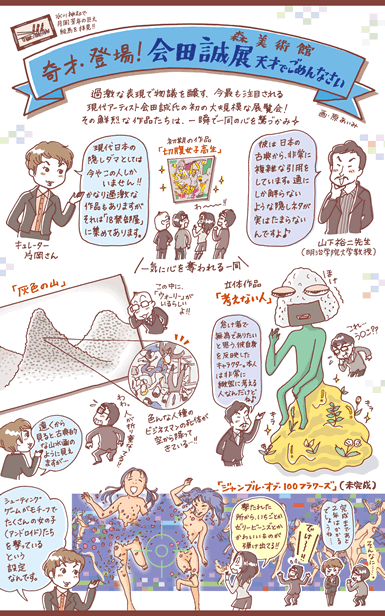 氷川神社で
月岡芳年の巨大
絵馬を拝見!!
森美術館
奇才・登場!会田誠展
天才でごめんなさい
過激な表現で物議を醸す、今最も注目される
現代アーティスト会田誠氏の初の大規模な展覧会!
その鮮烈な作品たちは、一瞬で一同の心を鷲づかみ
画・原あいみ
現代日本の
隠しダマとしては
今やこの人しか
いません!!
かなり過激な
作品もありますが
それは「18禁部屋」
に集めてあります。
キュレーター
片岡さん
初期の作品
「切腹女子高生」
わ〜〜!!
彼は日本の
古典から、非常に
複雑な引用を
しています。通に
しか解らない
ような隠しネタが
実はたまらない
んですよ♪
山下裕二先生
(明治学院大学教授)
一気に心を奪われる一同
「灰色の山」
この中に、
「ウォーリー」が
いるらしい
よ!!
遠くから
見ると古典的
な山水画の
ように見え
ますが…
色んな人種の
ビジネスマンの死体が
空から降って
きている…!!
立体作品
「考えない人」
怠け者で
無為でありたい
と思う、彼自身
を反映した
キャラクター。本人
は非常に
緻密に考える
人なんだけど
ほげ
キラ
「ジャンブル・オブ・100フラワーズ」(未完成)
シューティング・
ゲームがモチーフで
たくさんの女の子
(アンドロイド)たち
を撃っている
という
設定
なんです。
撃たれた
所から、いちごとか
ゼリービーンズとか
かわいいものが
弾け出てる!!
でけー!!
完成まであと
2年はかかる
でしょうね